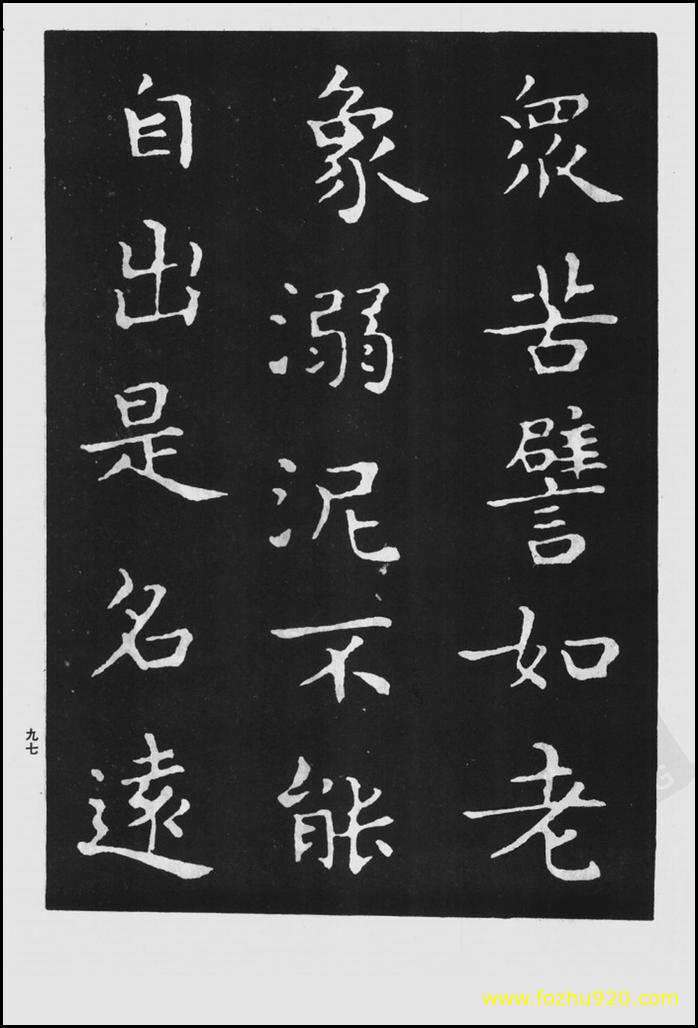 眾苦譬如老
象溺泥不能
自出是名遠
九七
www.fozhu920.com